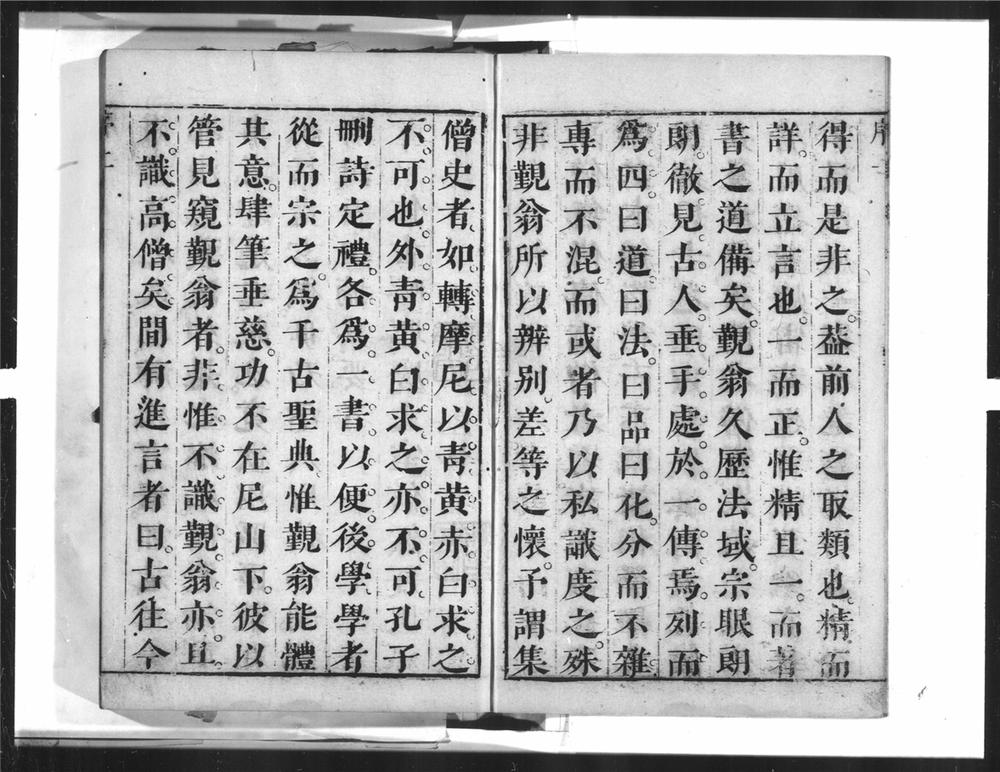 得而是非之。葢前人之取類也。精而
詳。而立言也。一而正。惟精且一。而著
書之道備矣。覲翁久歷法域。宗眼朗
朗。徹見古人。垂手處。於一傳焉。列而
爲四。曰道。曰法。曰品。曰化。分而不雜
專而不混。而或者乃以私識度之。殊
非覲翁所以辨別差等之懷。予謂集
僧史者。如轉摩尼。以青黃赤白求之
不可也。外青黃白求之。亦不可。孔子
刪詩定禮。各爲一書。以便後學。學者
從而宗之。爲千古聖典。惟覲翁能體
其意。肆筆垂慈。功不在尼山下。彼以
管見窺覲翁者。非惟不識覲翁。亦且
不識高僧矣。間有進言者曰。古往今